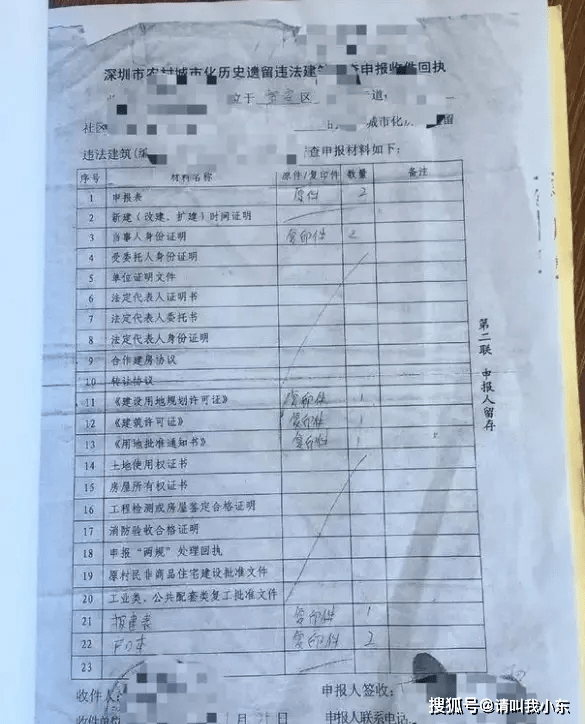 深圳市农村城市化历史遗留违法建筑 查申报收件回执
立于 宝安 区 道
社区 城市化 留
违法建筑( 查申报材料如下：
序号 材料名称 原件/复印件 数量 备注
1 申报表 原件 2
2 新建（改建、扩建）时间证明
3 当事人身份证明 复印件 2
4 受委托人身份证明
5 单位证明文件
6 法定代表人证明书
7 法定代表人委托书
8 法定代表人身份证明
9 合作建房协议
10 转让协议
11 《建设用地规划许可证》 复印件 1
12 《建筑许可证》 复印件 1
13 《用地批准通知书》 复印件 1
14 土地使用权证书
15 房屋所有权证书
16 工程检测或房屋鉴定合格证明
17 消防验收合格证明
18 申报“两规”处理回执
19 原村民非商品住宅建设批准文件
20 工业类、公共配套类复工批准文件
21 报建表 复印件 1
22 户口本 复印件 2
23
收件人 申报人签收：
收件单位 申报人联系电话
第二联 申报人留存
搜狐号@请叫我小东